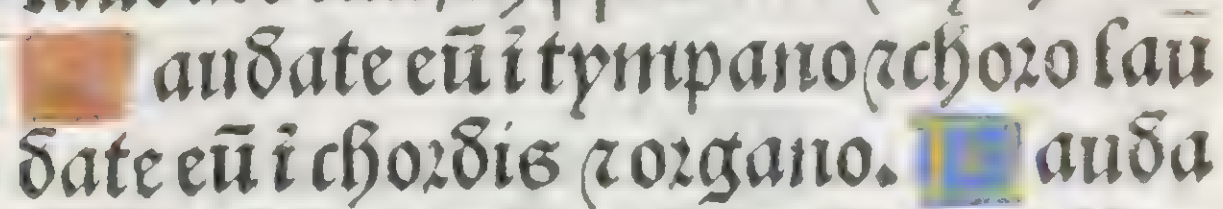 Laudate eū ī tympano ⁊ choro lau
date eū ī chordis ⁊ organo. Lauda